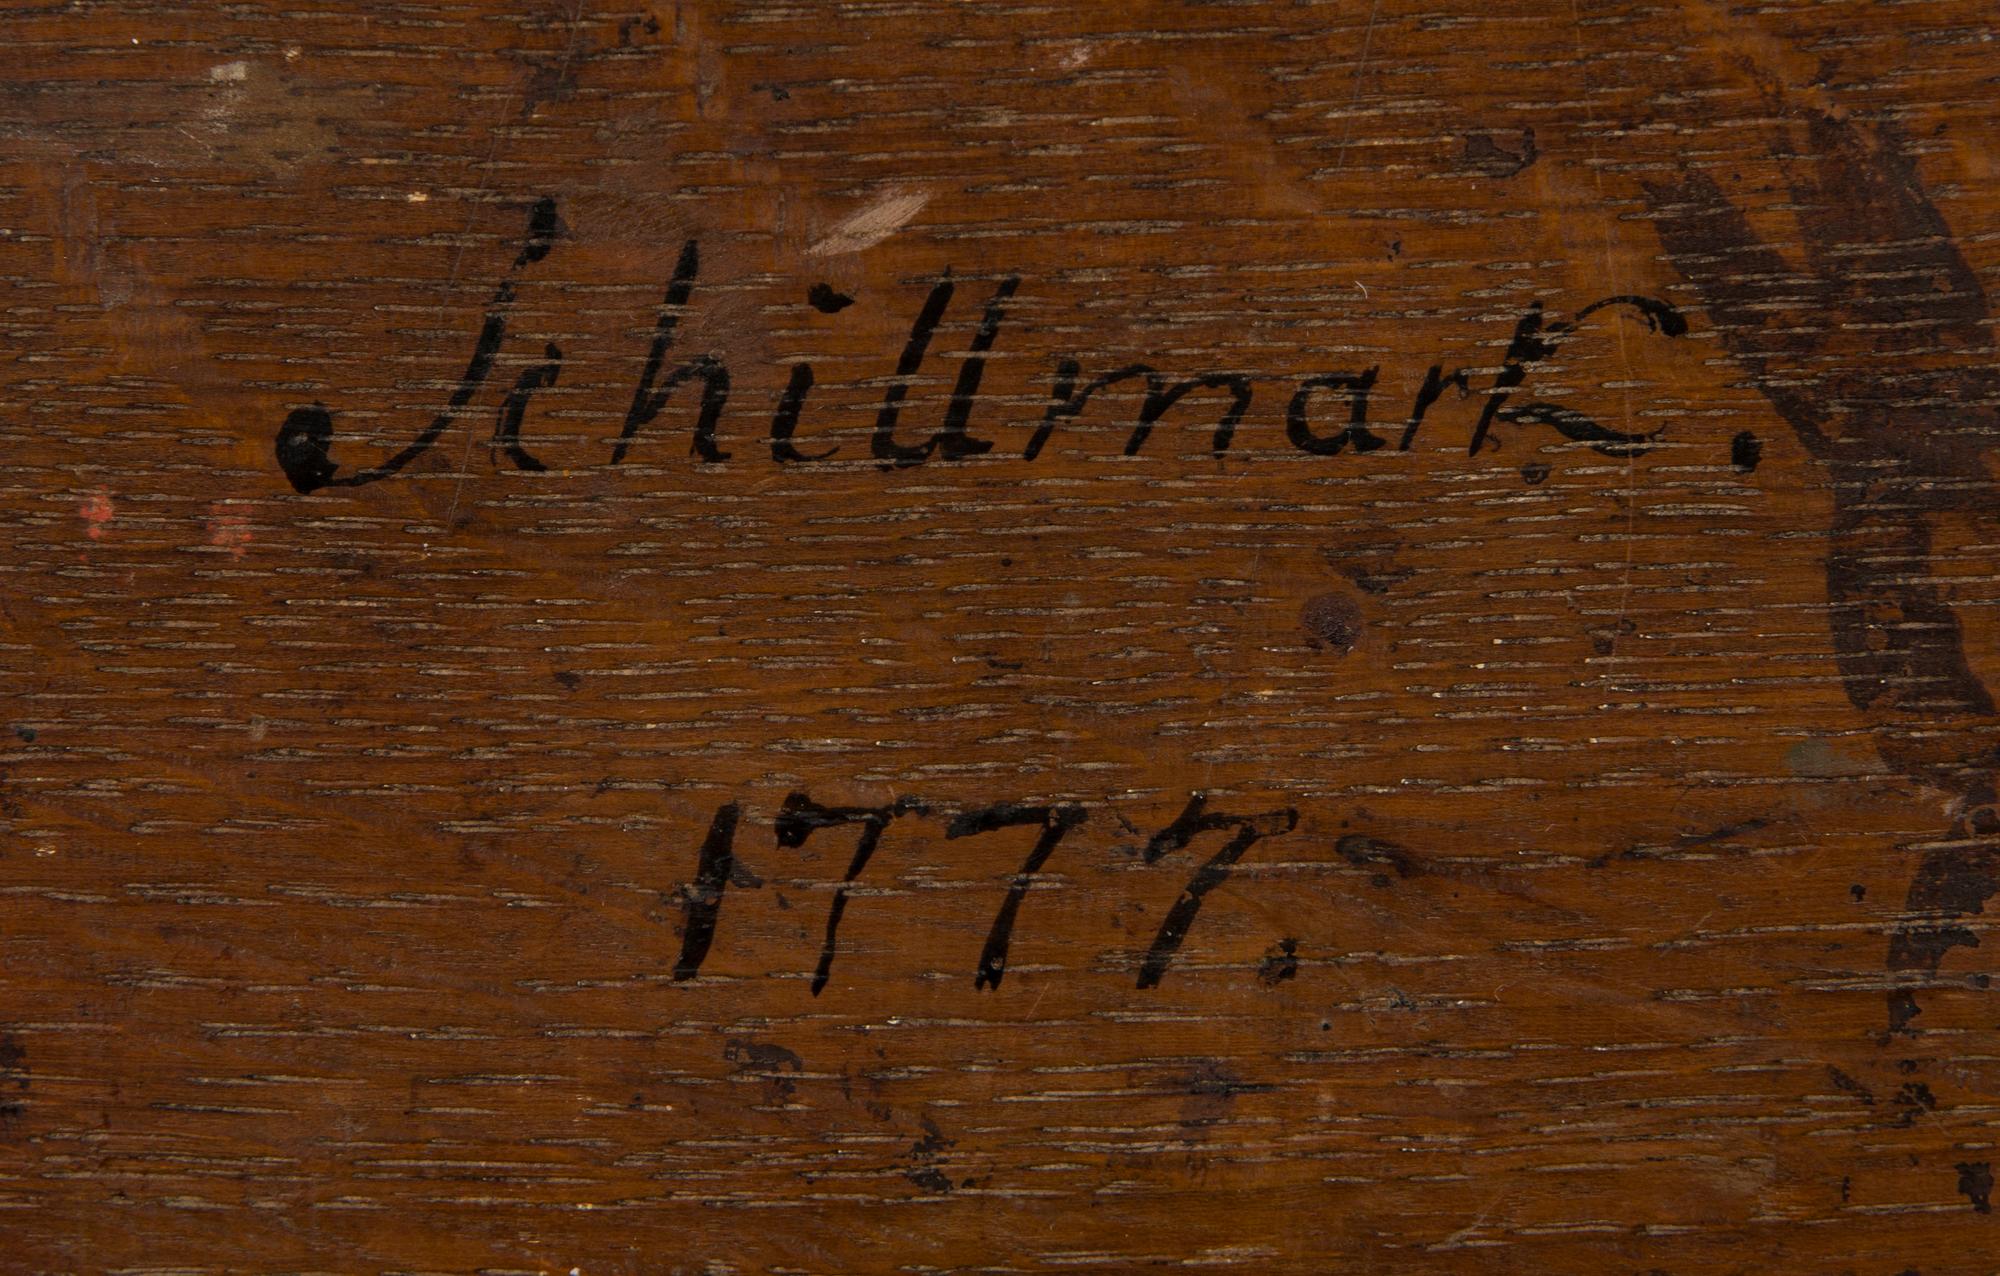 Schillmark.
1777.